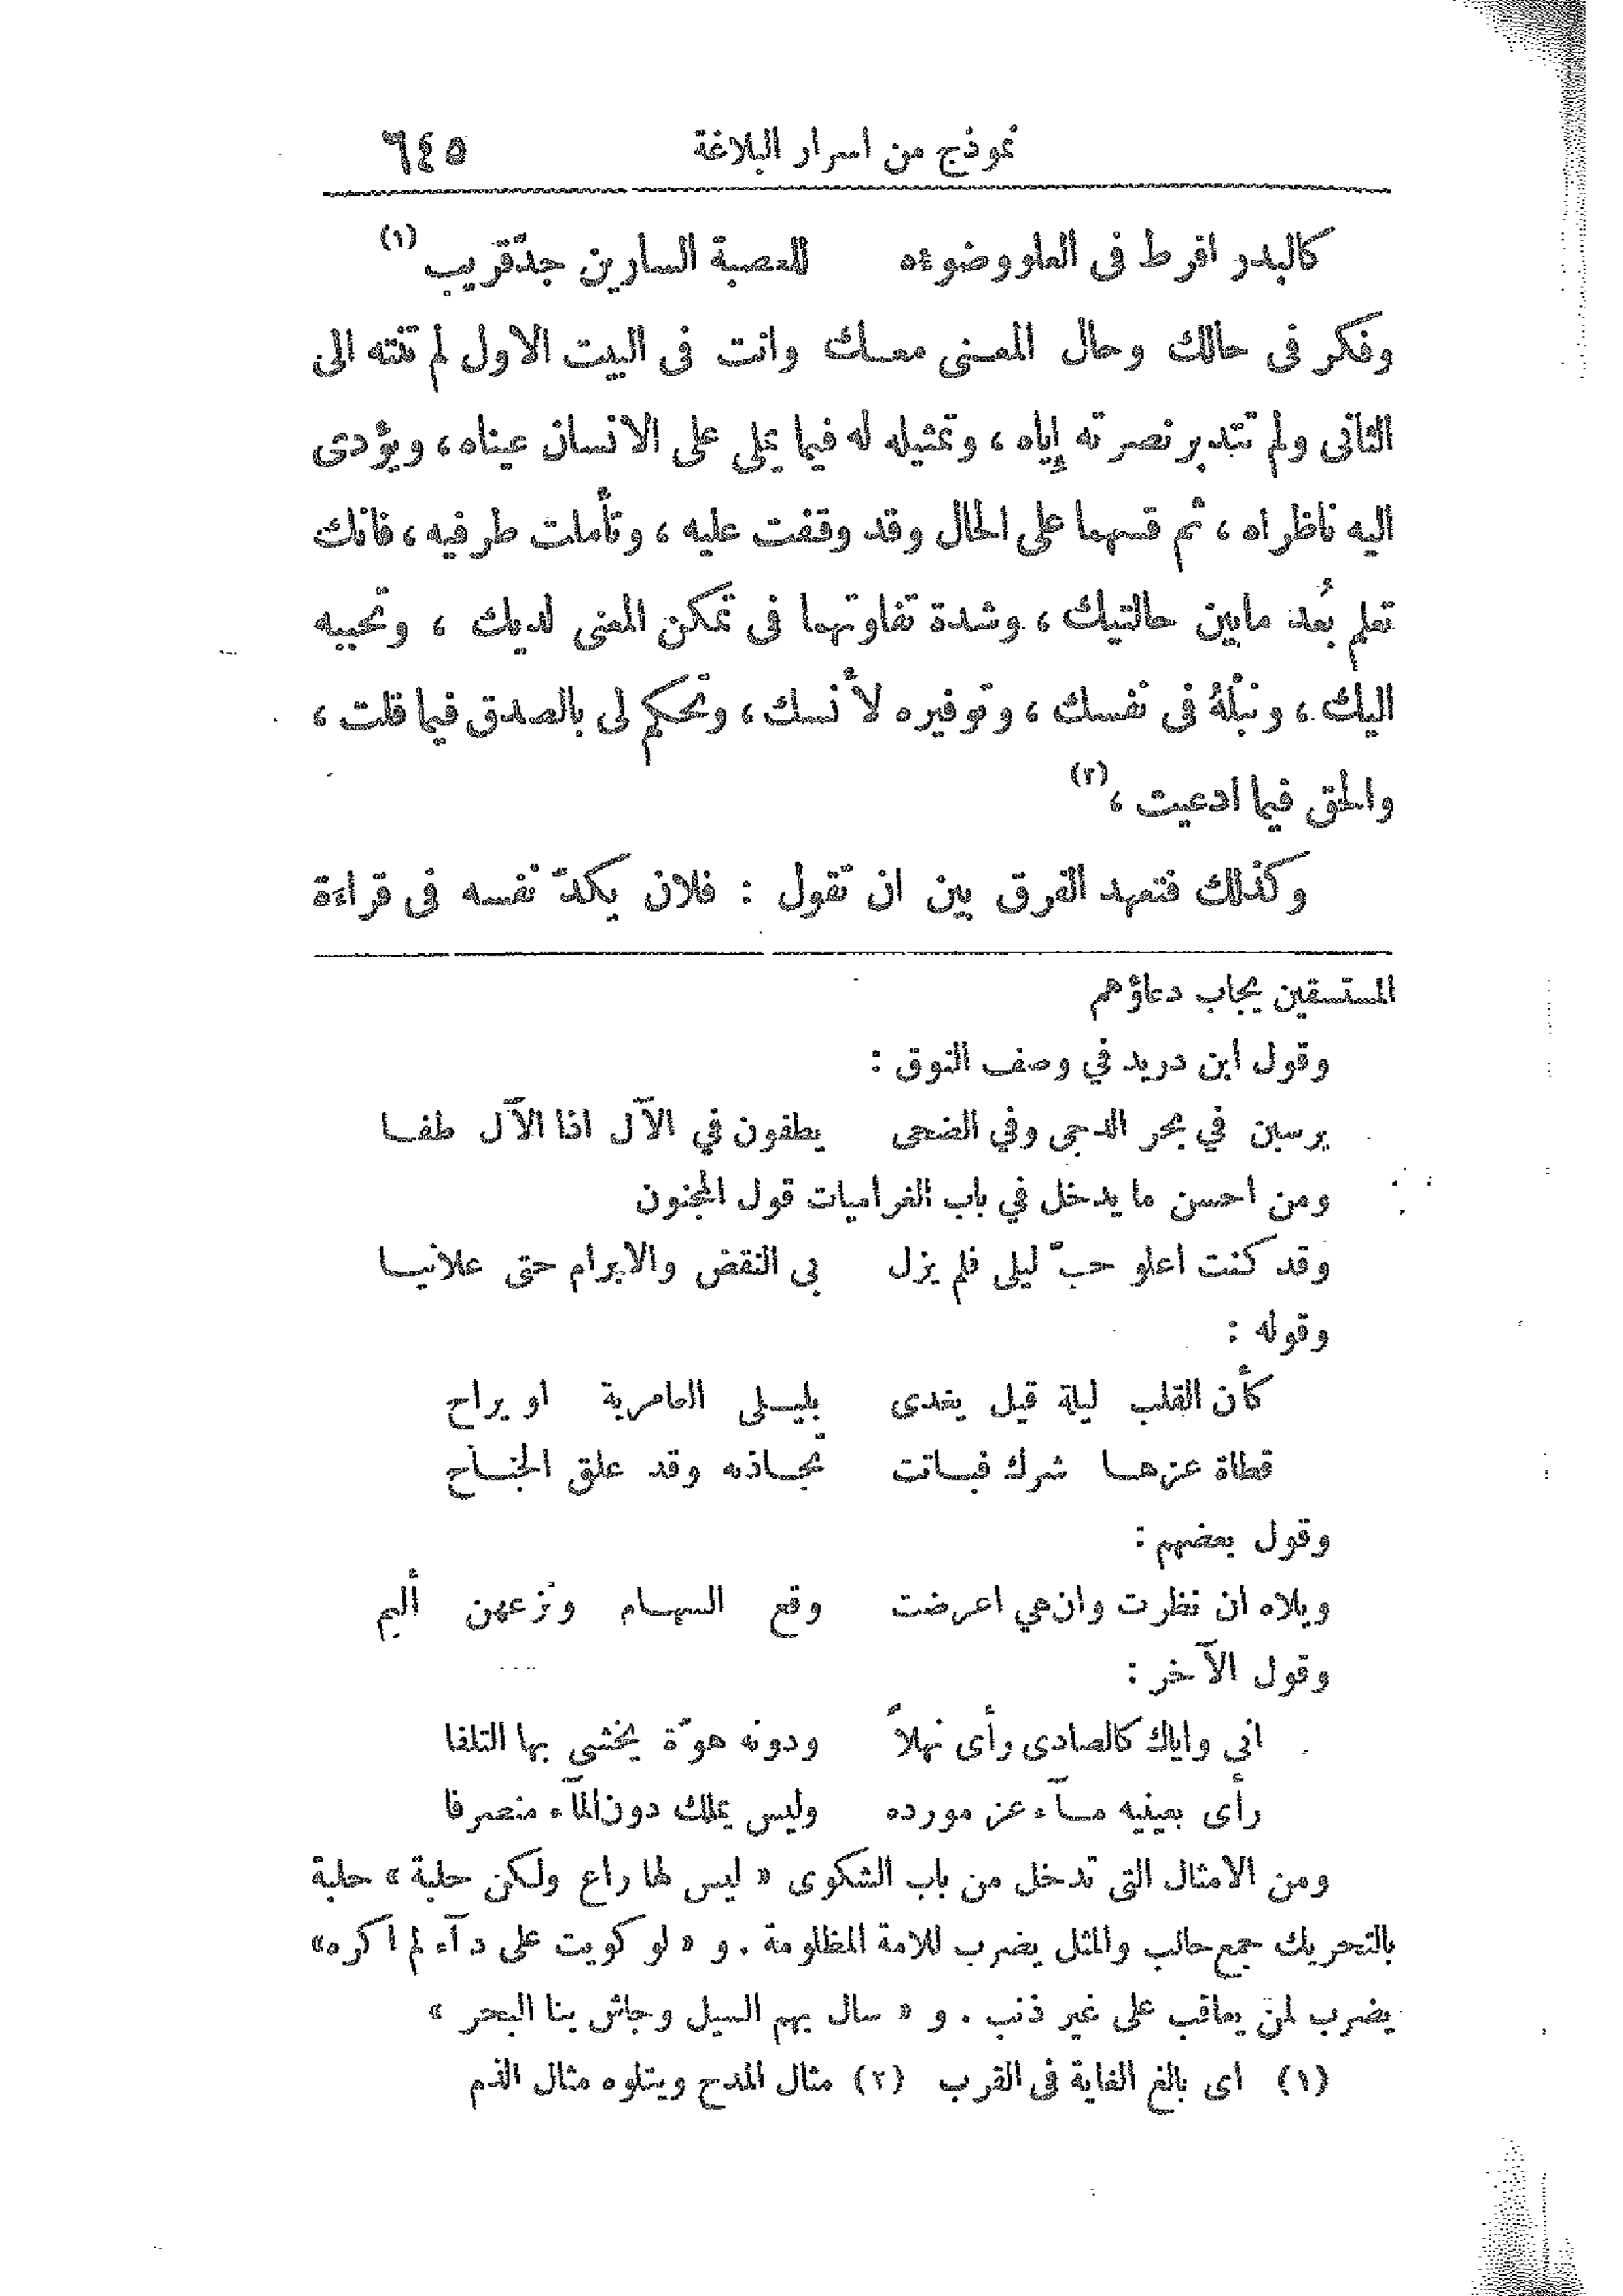 نموذج من اسرار البلاغة ٦٤٥
كالبدر افرط فى العلو وضوءه للعصبة السارين جدّ قريب (١)
وفكر فى حالك وحال المعنى معك وانت فى البيت الاول لم تنته الى
الثانى ولم تتدبر نصرته إياه ، وتمثيله له فيما يملى على الانسان عيناه ، ويؤدى
اليه ناظراه ، ثم قسهما على الحال وقد وقفت عليه ، وتأملت طرفيه ، فانك
تعلم بُعد مابين حالتيك ، وشدة تفاوتهما فى تمكن المعنى لديك ، وتحببه
اليك ، ونبْلهُ فى نفسك ، وتوفيره لأنسك ، وتحكم لى بالصدق فيما قلت ،
والحق فيما ادعيت ، (٢)
وكذلك فتعهد الفرق بين ان تقول : فلان يكدّ نفسه فى قراءة
المستسقين يجاب دعاؤهم
وقول ابن دريد في وصف النوق :
يرسبن في بحر الدجى وفي الضحى يطفون في الآل اذا الآل طفا
ومن احسن ما يدخل في باب الغراميات قول المجنون
وقد كنت اعلو حبّ ليلى فلم يزل بى النقض والابرام حتى علانيا
وقوله :
كأن القلب ليلة قيل يغدى بليلى العامرية او يراح
قطاة عزها شرك فباتت تجاذبه وقد علق الجناح
وقول بعضهم :
ويلاه ان نظرت وان هي اعرضت وقع السهام ونزعهن أليم
وقول الآخر :
انى واياك كالصادى رأى نهلاً ودونه هوّة يخشى بها التلفا
رأى بعينيه مآء عز مورده وليس يملك دون المآء منصرفا
ومن الامثال التى تدخل من باب الشكوى « ليس لها راع ولكن حلبة » حلبة
بالتحريك جمع حالب والمثل يضرب للامة المظلومة . و « لو كويت على دآء لم اكره»
يضرب لمن يعاقب على غير ذنب . و « سال بهم السيل وجاش بنا البحر »
(١) اى بالغ الغاية فى القرب (٢) مثال المدح ويتلوه مثال الذم